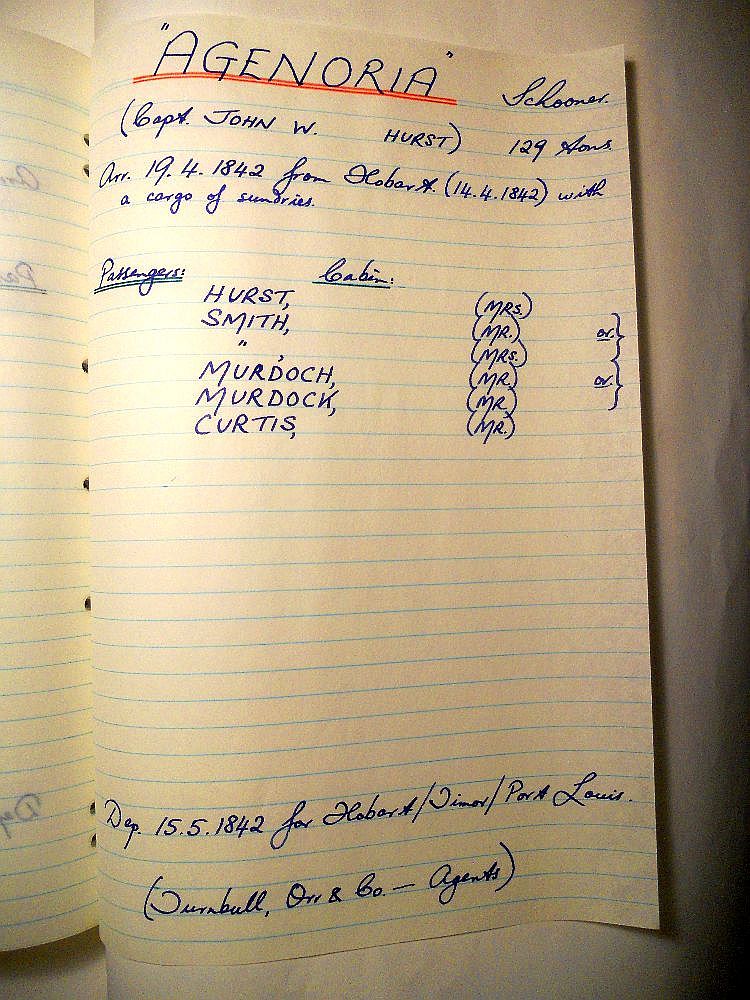 "AGENORIA" Schooner.
(Capt. JOHN W. HURST) 129 tons
Arr. 19.4.1842 from Hobart. (14.4.1842) with
a cargo of sundries.
Passengers: Cabin:
HURST, (MRS.)
SMITH, (MR.) or. }
" , (MRS.)
MURDOCH, (MR.) or. }
MURDOCK, (MR.)
CURTIS, (MR.)
Dep. 15.5.1842 for Hobart/Timor/Port Louis.
(Turnbull, Orr & Co. — Agents)